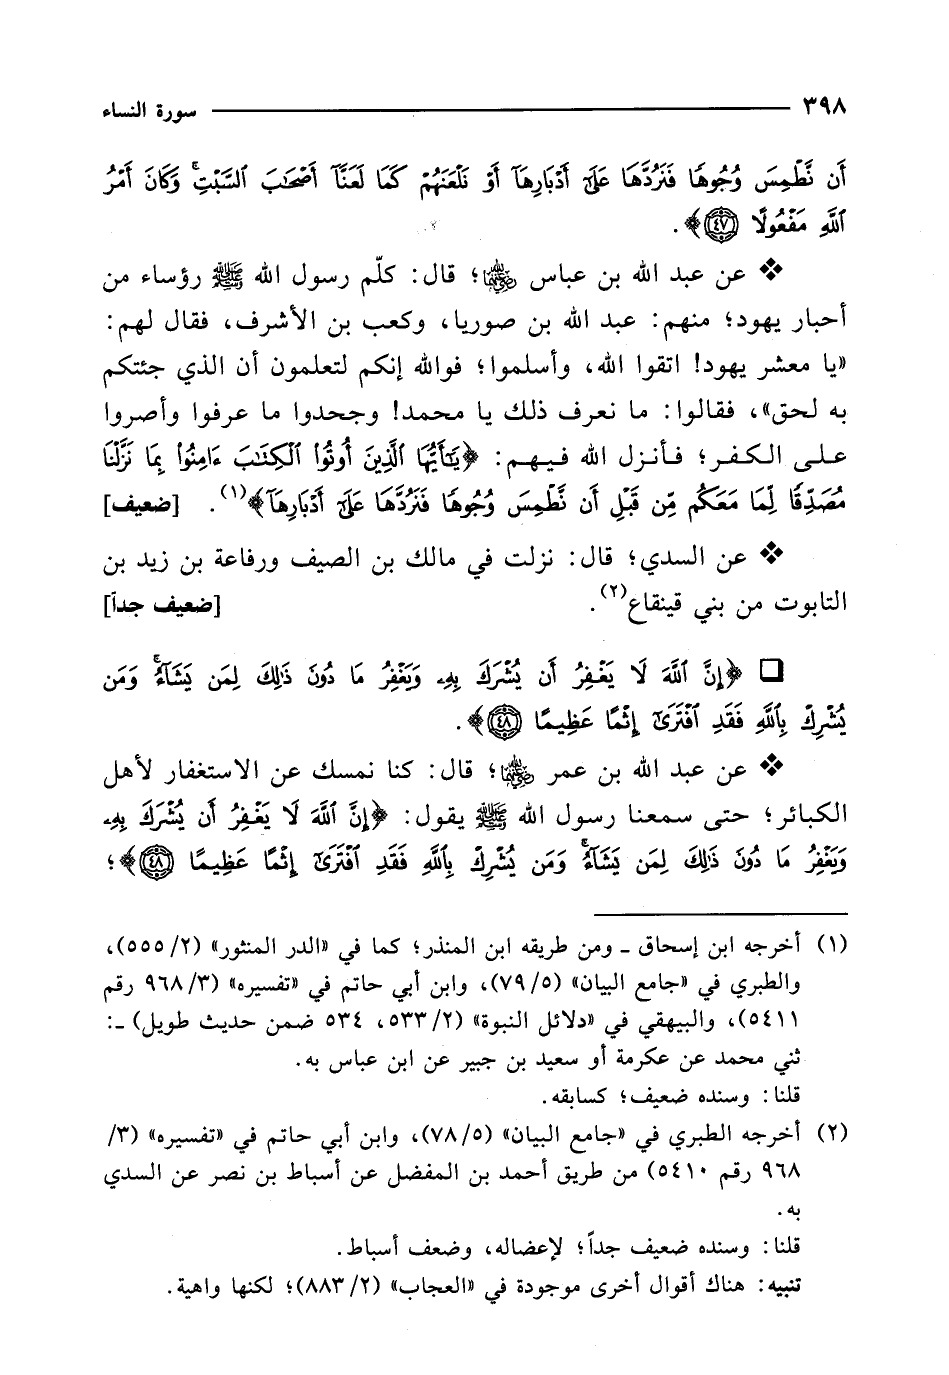 ٣٩٨ سورة النساء
أَن نَّطْمِسَ وُجُوهًا فَنَرُدَّهَا عَلَىٰٓ أَدْبَارِهَآ أَوْ نَلْعَنَهُمْ كَمَا لَعَنَّآ أَصْحَٰبَ ٱلسَّبْتِۚ وَكَانَ أَمْرُ
ٱللَّهِ مَفْعُولًا ٤٧﴾.
❖ عن عبد الله بن عباس ﵄؛ قال: كلّم رسول الله ﷺ رؤساء من
أحبار يهود؛ منهم: عبد الله بن صوريا، وكعب بن الأشرف، فقال لهم:
«يا معشر يهود! اتقوا الله، وأسلموا؛ فوالله إنكم لتعلمون أن الذي جئتكم
به لحق»، فقالوا: ما نعرف ذلك يا محمد! وجحدوا ما عرفوا وأصروا
على الكفر؛ فأنزل الله فيهم: ﴿يَٰٓأَيُّهَا ٱلَّذِينَ أُوتُوا۟ ٱلْكِتَٰبَ ءَامِنُوا۟ بِمَا نَزَّلْنَا
مُصَدِّقًا لِّمَا مَعَكُم مِّن قَبْلِ أَن نَّطْمِسَ وُجُوهًا فَنَرُدَّهَا عَلَىٰٓ أَدْبَارِهَآ﴾(١). [ضعيف]
❖ عن السدي؛ قال: نزلت في مالك بن الصيف ورفاعة بن زيد بن
التابوت من بني قينقاع(٢). [ضعيف جداً]
❑ ﴿إِنَّ ٱللَّهَ لَا يَغْفِرُ أَن يُشْرَكَ بِهِۦ وَيَغْفِرُ مَا دُونَ ذَٰلِكَ لِمَن يَشَآءُۚ وَمَن
يُشْرِكْ بِٱللَّهِ فَقَدِ ٱفْتَرَىٰٓ إِثْمًا عَظِيمًا ٤٨﴾.
❖ عن عبد الله بن عمر ﵄؛ قال: كنا نمسك عن الاستغفار لأهل
الكبائر؛ حتى سمعنا رسول الله ﷺ يقول: ﴿إِنَّ ٱللَّهَ لَا يَغْفِرُ أَن يُشْرَكَ بِهِۦ
وَيَغْفِرُ مَا دُونَ ذَٰلِكَ لِمَن يَشَآءُۚ وَمَن يُشْرِكْ بِٱللَّهِ فَقَدِ ٱفْتَرَىٰٓ إِثْمًا عَظِيمًا ٤٨﴾؛
(١) أخرجه ابن إسحاق ـ ومن طريقه ابن المنذر؛ كما في «الدر المنثور» (٢/ ٥٥٥)،
والطبري في «جامع البيان» (٥/ ٧٩)، وابن أبي حاتم في «تفسيره» (٣/ ٩٦٨ رقم
٥٤١١)، والبيهقي في «دلائل النبوة» (٢/ ٥٣٣، ٥٣٤ ضمن حديث طويل) ـ:
ثني محمد عن عكرمة أو سعيد بن جبير عن ابن عباس به.
قلنا: وسنده ضعيف؛ كسابقه.
(٢) أخرجه الطبري في «جامع البيان» (٥/ ٧٨)، وابن أبي حاتم في «تفسيره» (٣/
٩٦٨ رقم ٥٤١٠) من طريق أحمد بن المفضل عن أسباط بن نصر عن السدي
به.
قلنا: وسنده ضعيف جداً؛ لإعضاله، وضعف أسباط.
تنبيه: هناك أقوال أخرى موجودة في «العجاب» (٢/ ٨٨٣)؛ لكنها واهية.